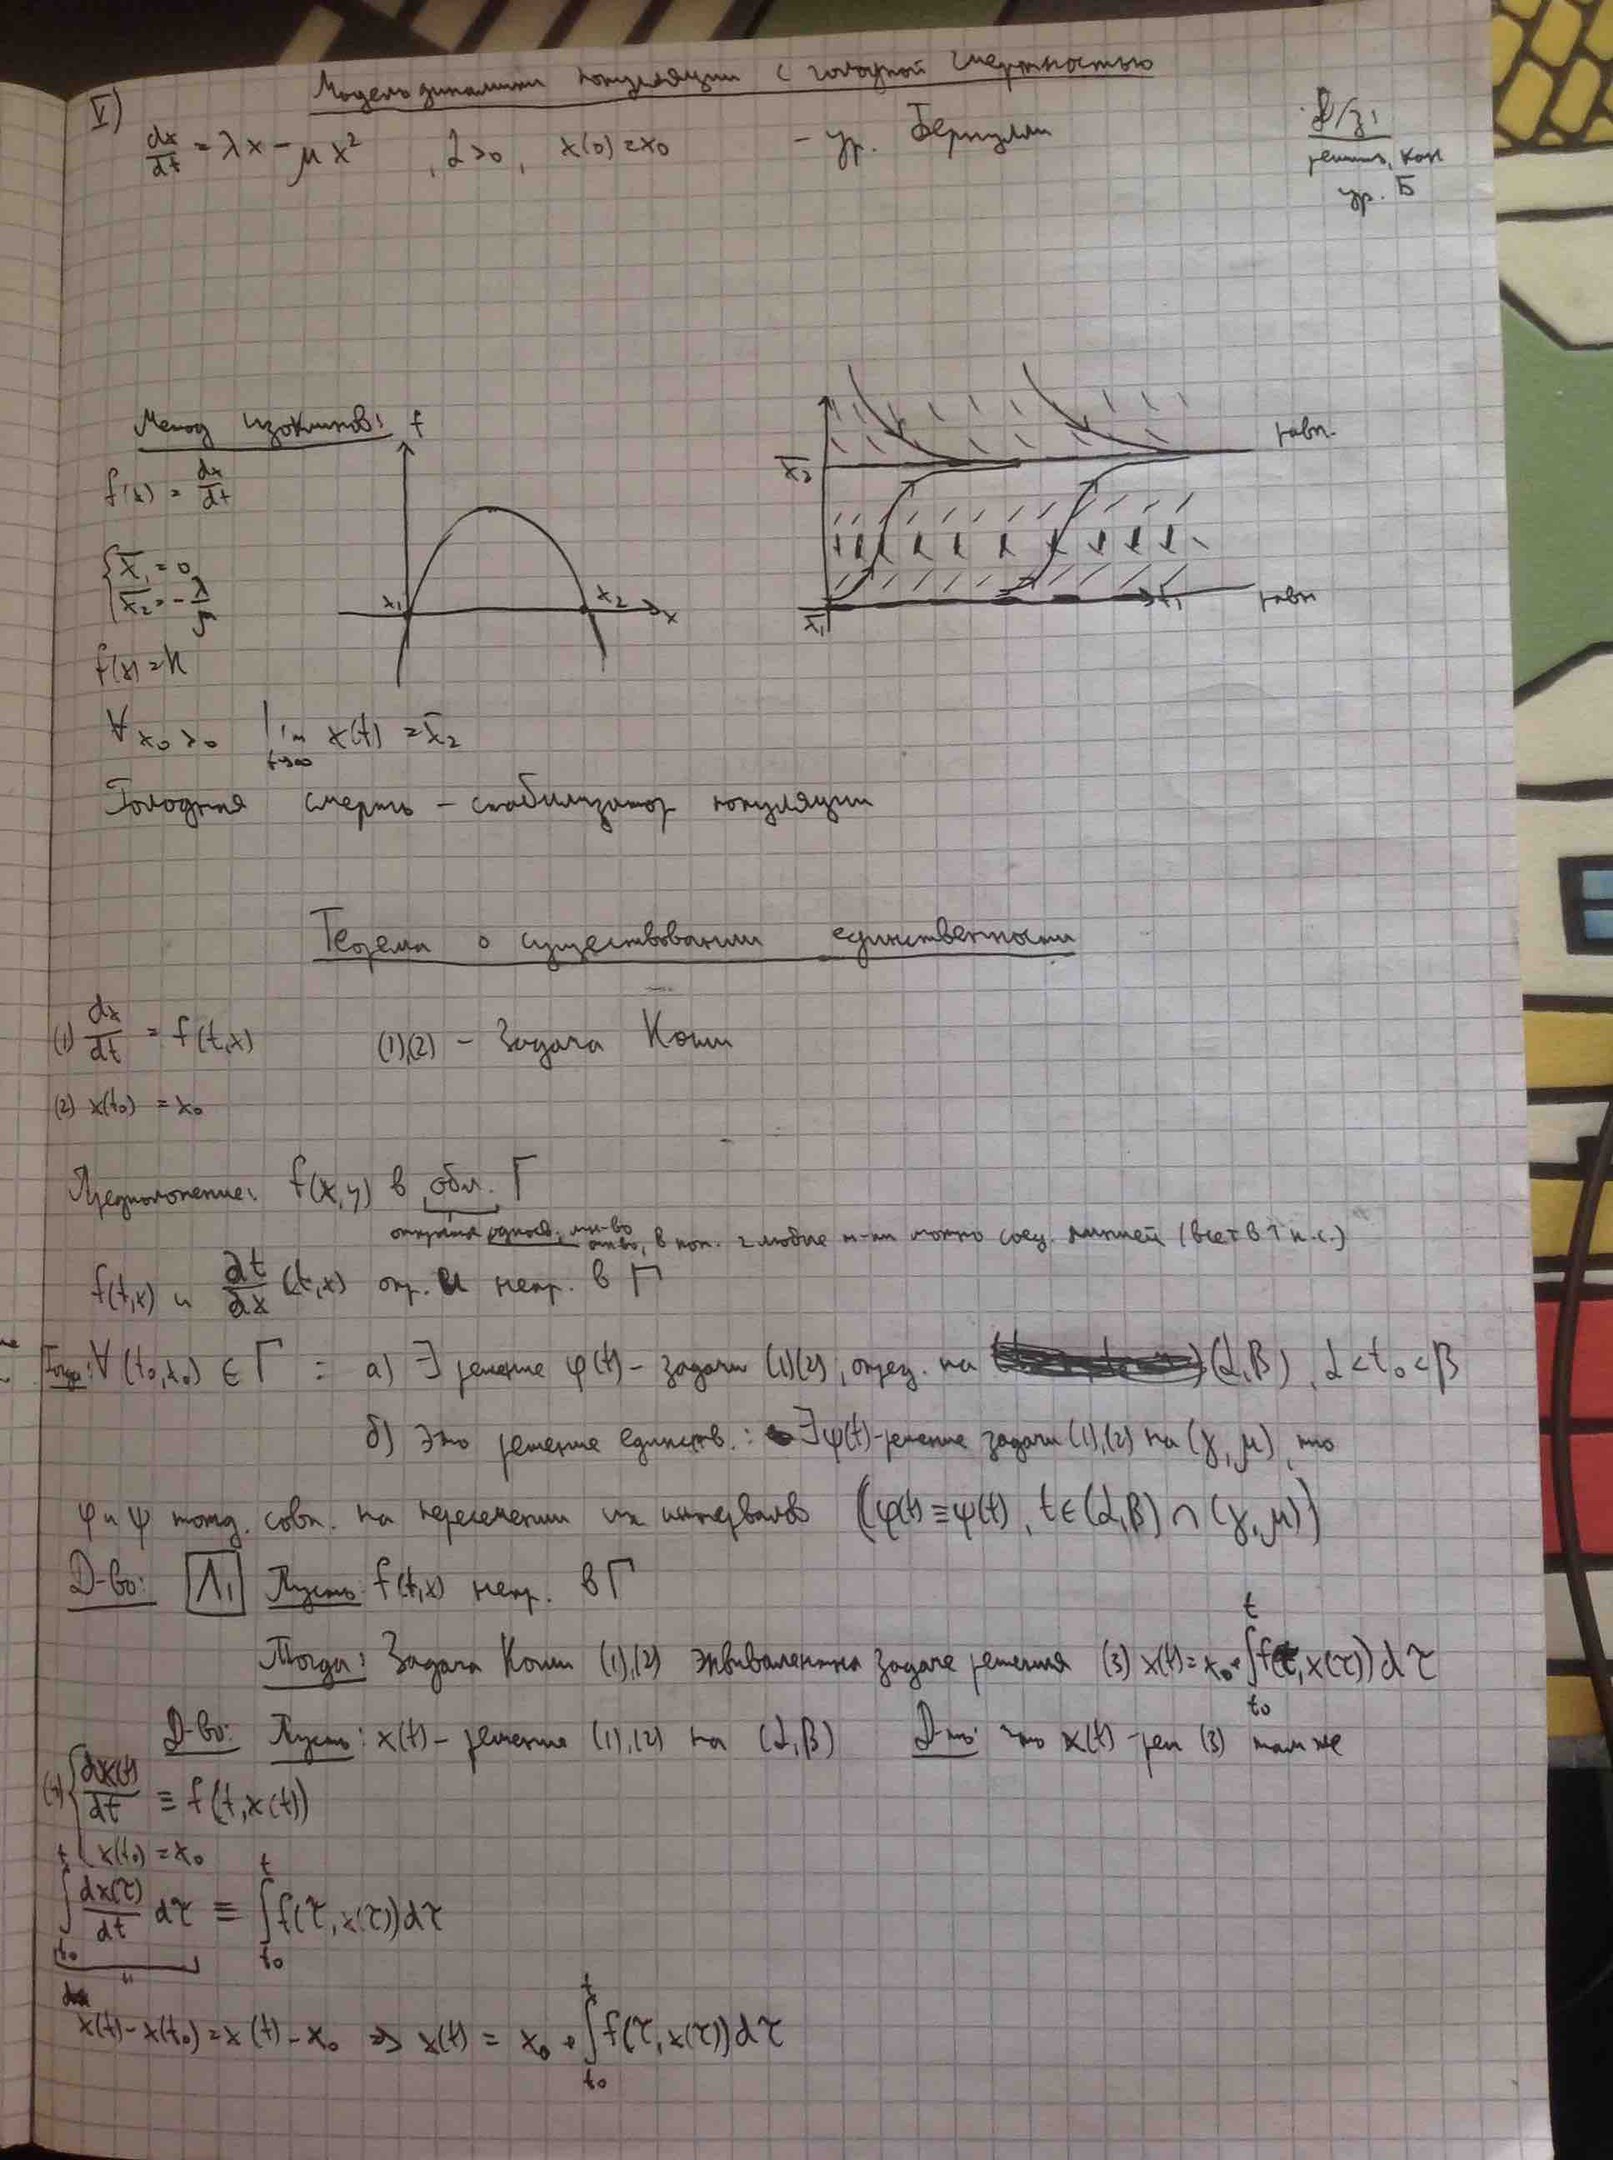 V) Модель динамики популяции с голодной смертностью
dx/dt = λx - μx² , λ>0, x(0)=x₀ - ур. Бернулли
Д/з:
решить, как
ур. Б
Метод изоклинов: f
f(x) = dx/dt
{ x̄₁ = 0
x̄₂ = -λ/μ
x₁ x₂ x
x̄₂ равн.
x̄₁ t равн
f(x) = k
∀ x₀>0 lim t→∞ x(t) = x̄₂
Голодная смерть - стабилизатор популяции
Теорема о существовании единственности
(1) dx/dt = f(t,x) (1),(2) - Задача Коши
(2) x(t₀) = x₀
Предположение: f(x,y) в обл. Γ
мн-во, в кот. 2 любые т-ки можно соед. линией
f(t,x) и ∂f/∂x (t,x) опр. и непр. в Γ
Тогда: ∀ (t₀,x₀) ∈ Γ : а) ∃ решение φ(t) - задачи (1)(2), опред. на (α,β), α < t₀ < β
б) Это решение единств.: ∃ψ(t) - решение задачи (1),(2) на (γ,μ), то
φ и ψ тожд. совп. на пересечении их интервалов (φ(t) ≡ ψ(t), t ∈ (α,β) ∩ (γ,μ))
Д-во: Л₁ Пусть f(t,x) непр. в Γ
Тогда: Задача Коши (1),(2) эквивалентна задаче решения (3) x(t) = x₀ + ∫ₜ₀ᵗ f(τ,x(τ))dτ
Д-во: Пусть: x(t) - решение (1),(2) на (α,β) Д-ть: что x(t) - реш (3) там же
(4) { dx(t)/dt ≡ f(t,x(t))
x(t₀) = x₀
∫ₜ₀ᵗ dx(τ)/dt dτ ≡ ∫ₜ₀ᵗ f(τ,x(τ))dτ
x(t) - x(t₀) = x(t) - x₀ ⇒ x(t) = x₀ + ∫ₜ₀ᵗ f(τ,x(τ))dτ